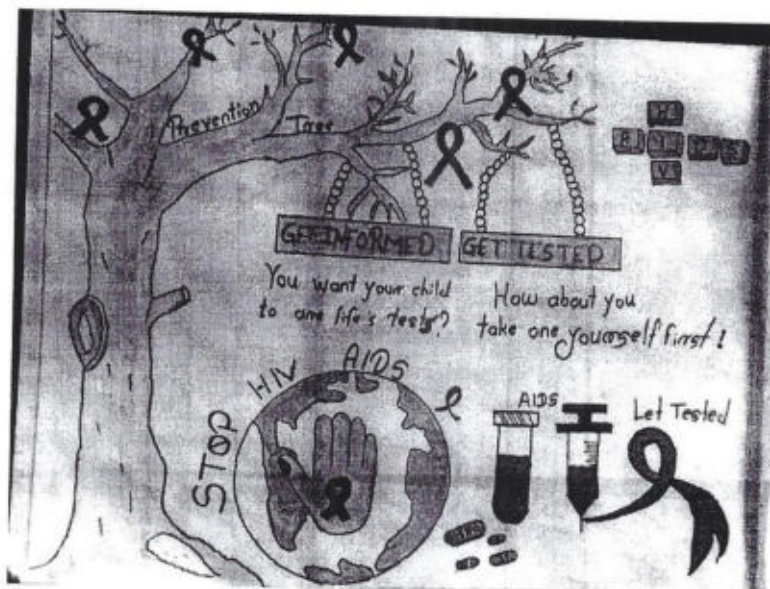 Prevention Tree
H
I
V
GET INFORMED
GET TESTED
You want your child
to one life's tests?
How about you
take one yourself first!
STOP HIV AIDS
AIDS
Let Tested